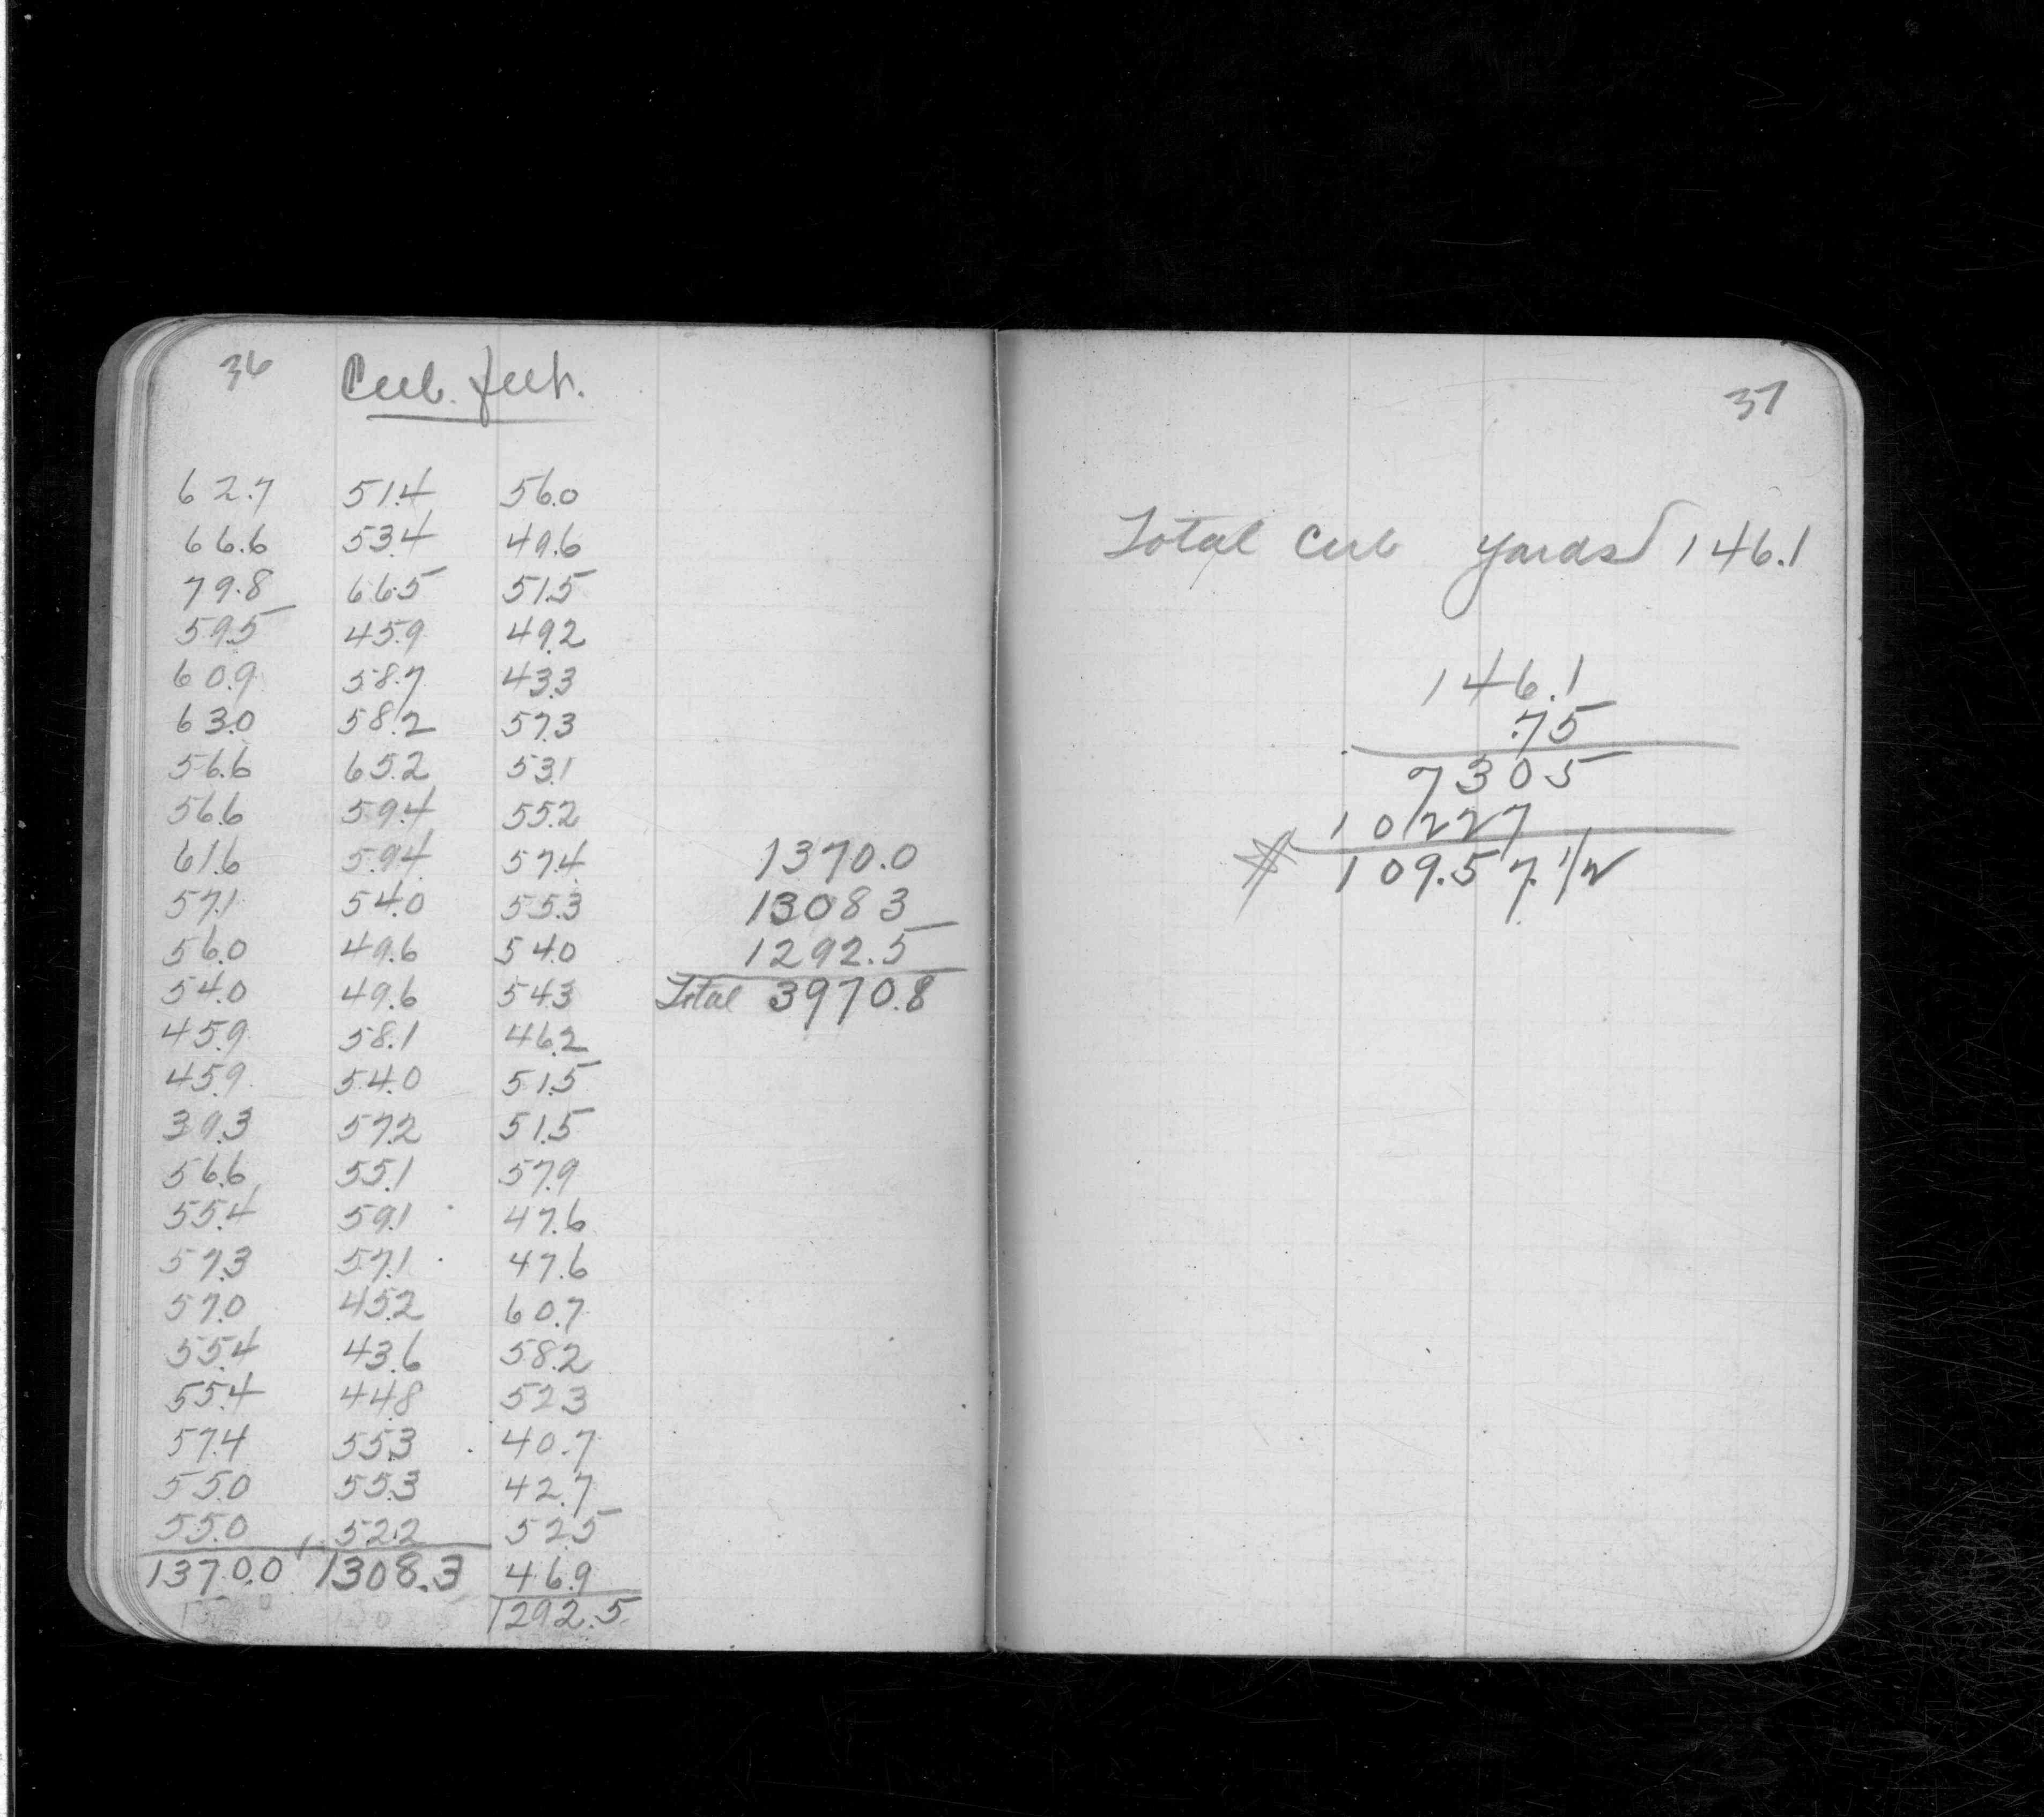 36 Cub. feet.
62.7 51.4 56.0
66.6 53.4 49.6
79.8 66.5 51.5
59.5 45.9 49.2
60.9 58.7 43.3
63.0 58.2 57.3
56.6 65.2 53.1
56.6 59.4 55.2
61.6 59.4 57.4 1370.0
57.1 54.0 55.3 1308 3
56.0 49.6 54.0 1292.5
54.0 49.6 54.3 Total 3970.8
45.9 58.1 46.2
45.9 54.0 51.5
39.3 57.2 51.5
56.6 55.1 57.9
55.4 59.1 47.6
57.3 57.1 47.6
57.0 45.2 60.7
55.4 43.6 58.2
55.4 44.8 52.3
57.4 55.3 40.7
55.0 55.3 42.7
55.0 52.2 52.5
1370.0 1308.3 46.9
1292.5
37
Total Cub yards 146.1
146.1
.75
7305
10227
$ 109.57.1/2